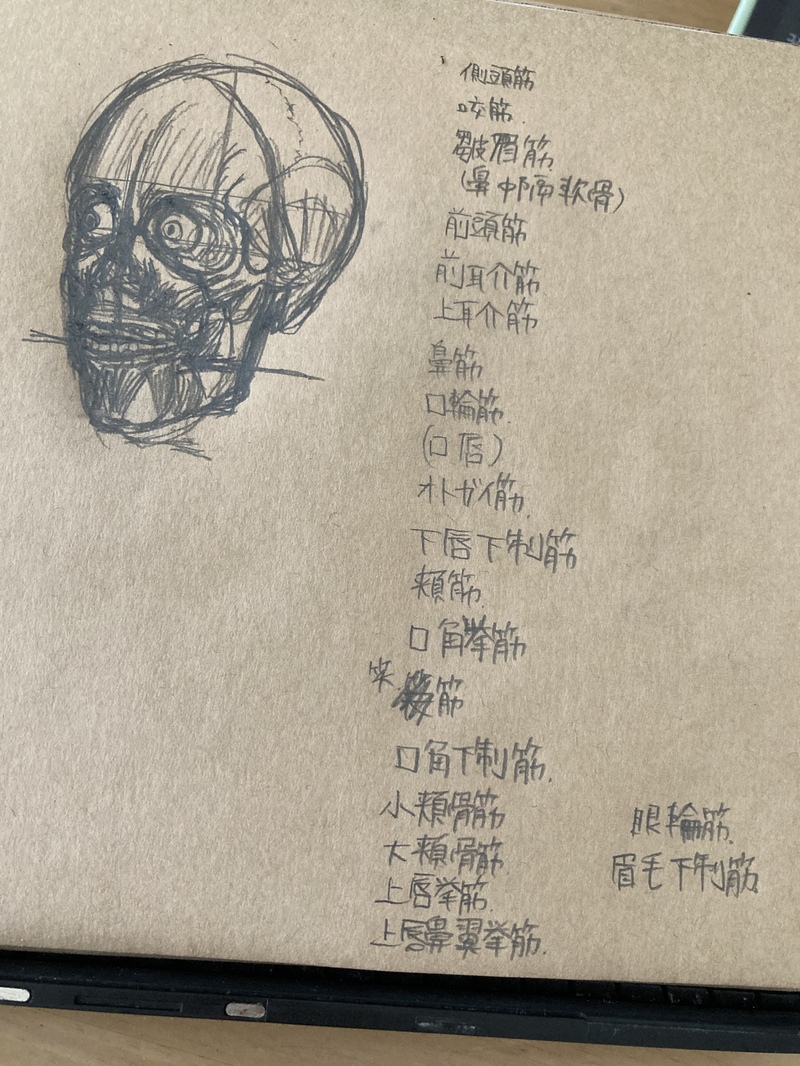 側頭筋
咬筋.
皺眉筋
(鼻中隔軟骨)
前頭筋
前耳介筋
上耳介筋
鼻筋
口輪筋.
(口唇)
オトガイ筋.
下唇下制筋
頬筋.
口角挙筋
笑筋
口角下制筋.
小頬骨筋
大頬骨筋
上唇挙筋.
上唇鼻翼挙筋.
眼輪筋.
眉毛下制筋